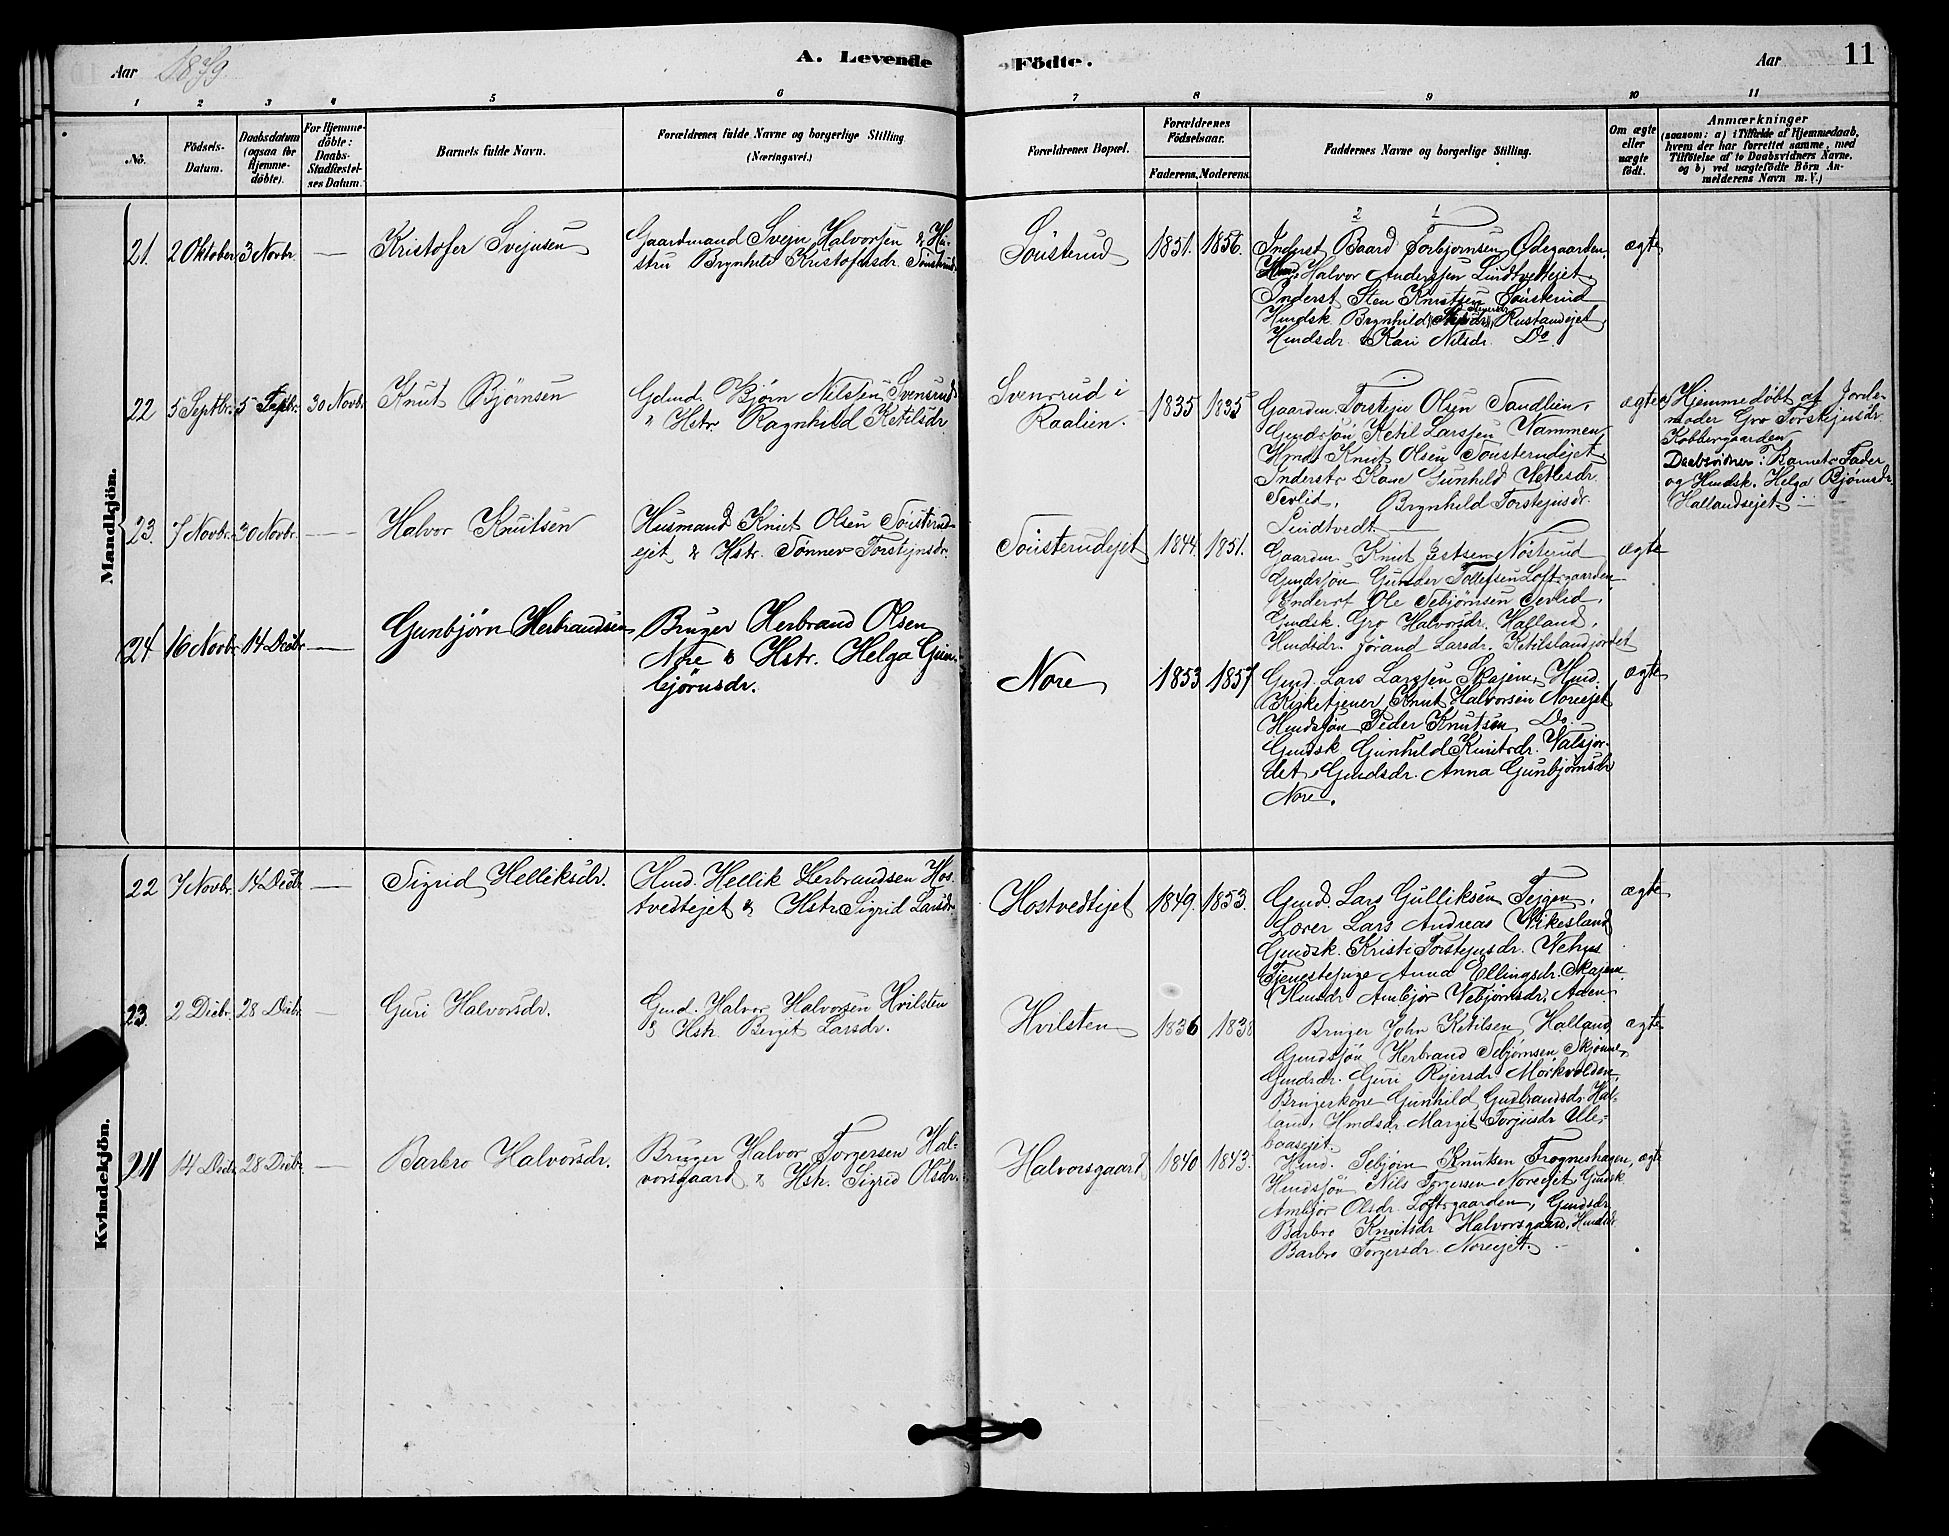 Aar 1879. A. Levende Födte. Aar 11
1 2 3 4 5 6 7 8 9 10 11
No.
Födsels-
Datum.
Daabsdatum
(ogsaa for
Hjemme-
döbte).
For Hjemme-
döbte:
Daabs-
Stadfæstel-
ses Datum.
Barnets fulde Navn.
Forældrenes fulde Navne og borgerlige Stilling
(Næringsvei.)
Forældrenes Bopæl.
Forældrenes
Födselsaar.
Faderens. Moderens.
Faddernes Navne og borgerlige Stilling.
Om ægte
eller
uægte
födt.
Anmærkninger
(saasom: a) i Tilfælde af Hjemmedaab,
hvem der har forrettet samme, med
Tilföielse af to Daabsvidners Navne,
og b) ved uægtefödte Börn An-
melderens Navn m. V.)
Mandkjön.
21. 2 Oktober 3 Novbr. —
Kristofer Svejnsen
Gaardmand Svejn Halvorsen & Hu-
stru Brynhild Kristofersdr. Tousterud
Tousterud
1851. 1856.
2 1
Inderst Baard Torbjørnsen Ødegaarden
Hmd. Halvor Anderssen Lindtvedtejet
Inderst Sten Knutsen Tousterud
Hmdsk. Brynhild Rustandejet
Hmdsdr. Kari Nilsdr. Do.
ægte
22 5 Septbr. 5 Septbr. 30 Novb.
Knut Bjørnsen
Gdmd. Bjørn Nilsen Svensrud
" Hstr. Ragnhild Ketilsdr.
Svensrud i
Raalien.
1835 1835
Gaardm. Torstejn Olsen Sandlien,
Gmdssøn Ketil Larssen Nammen
Hmd. Knut Olsen Tousterudejet
Inderstr Kone Gunhild Vetlesdr.
Sevlid, Brynhild Torstejnsdr.
Lindtvedt.
ægte
a) Hjemmedøbt af Jorde-
moder Gro Torstejnsdr.
Kobbergaarden
Daabsvidner: Barnets Fader
og Hmdsk. Helga Bjørnsdr.
Hallandsejet —
23. 7 Novbr. 30 Novbr. ---
Halvor Knutsen
Husmand Knut Olsen Tousterud-
ejet & Hstr. Tonnev Torstejnsdr.
Tousterudejet
1844. 1851.
Gaardm. Knut Nøsterud
Gmdssøn Gunder Tollefsen Loftsgaarden
Inderst Ole Sebjørnsen Sevlid,
Gmdsk. Gro Halvorsdr. Halland,
Hmdsdr. Jörand Larsdr. Ketilslandjordet
ægte
24 16 Novbr. 14 Decbr. —
Gunbjørn Herbrandsen
Bruger Herbrand Olsen
Nore & Hstr. Helga Gun-
bjørnsdr.
Nore
1853 1857
Gmd. Lars Larssen Skajem, Hmd.
Kirketjener Knut Halvorsen Noreejet
Hmdssøn Peder Knutsen Do.
Gmdsk. Gunhild Knutsdr. Valsjor-
det, Gmdsdr. Anna Gunbjørnsdr
Nore.
ægte
Kvindekjön.
22 7 Novbr. 14 Decbr —
Sigrid Helliksdr.
Hmd. Hellik Herbrandsen Hos-
tvedtejet & Hstr. Sigrid Larsdr.
Hostvedtejet
1849. 1853.
Gmd. Lars Gulliksen Tejgen,
Lærer Lars Andreas Vikesland
Gmdsk. Kristi Torstejnsdr. Vehus
Tjenestepige Anna Ellingsdr. Skajem
Hmdsdr Ambjør Vebjørnsdr. Aaen
ægte
23. 2 Decbr. 28 Decbr —
Guri Halvorsdr.
Gmd. Halvor Halvorsen Hvilsten
& Hstr. Bergit Larsdr.
Hvilsten
1836 1838
Bruger John Ketilsen Halland
Gmdssøn Herbrand Sebjørnsen Skjønne,
Gmdsdr. Guri Rejersdr. Mørkvolden,
Brugerkone Gunhild Gudbrandsdr. Hal-
land, Hmdsdr. Margit Torjusdr. Ulle-
baasejet.
ægte
24 14 Decbr 28 Decbr —
Barbro Halvorsdr.
Bruger Halvor Torgersen Hal-
vorsgaard & Hstr. Sigrid Olsdr.
Halvorsgaard
1840 1843.
Hmd. Sebjørn Knutsen Trogneshagen,
Hmdssøn Nils Torgersen Noreejet Gmdsk
Ambjør Olsdr. Loftsgaarden, Gmdsdr
Barbro Knutsdr Halvorsgaard, Hmdsdr
Barbro Torgersdr. Noreejet.
ægte